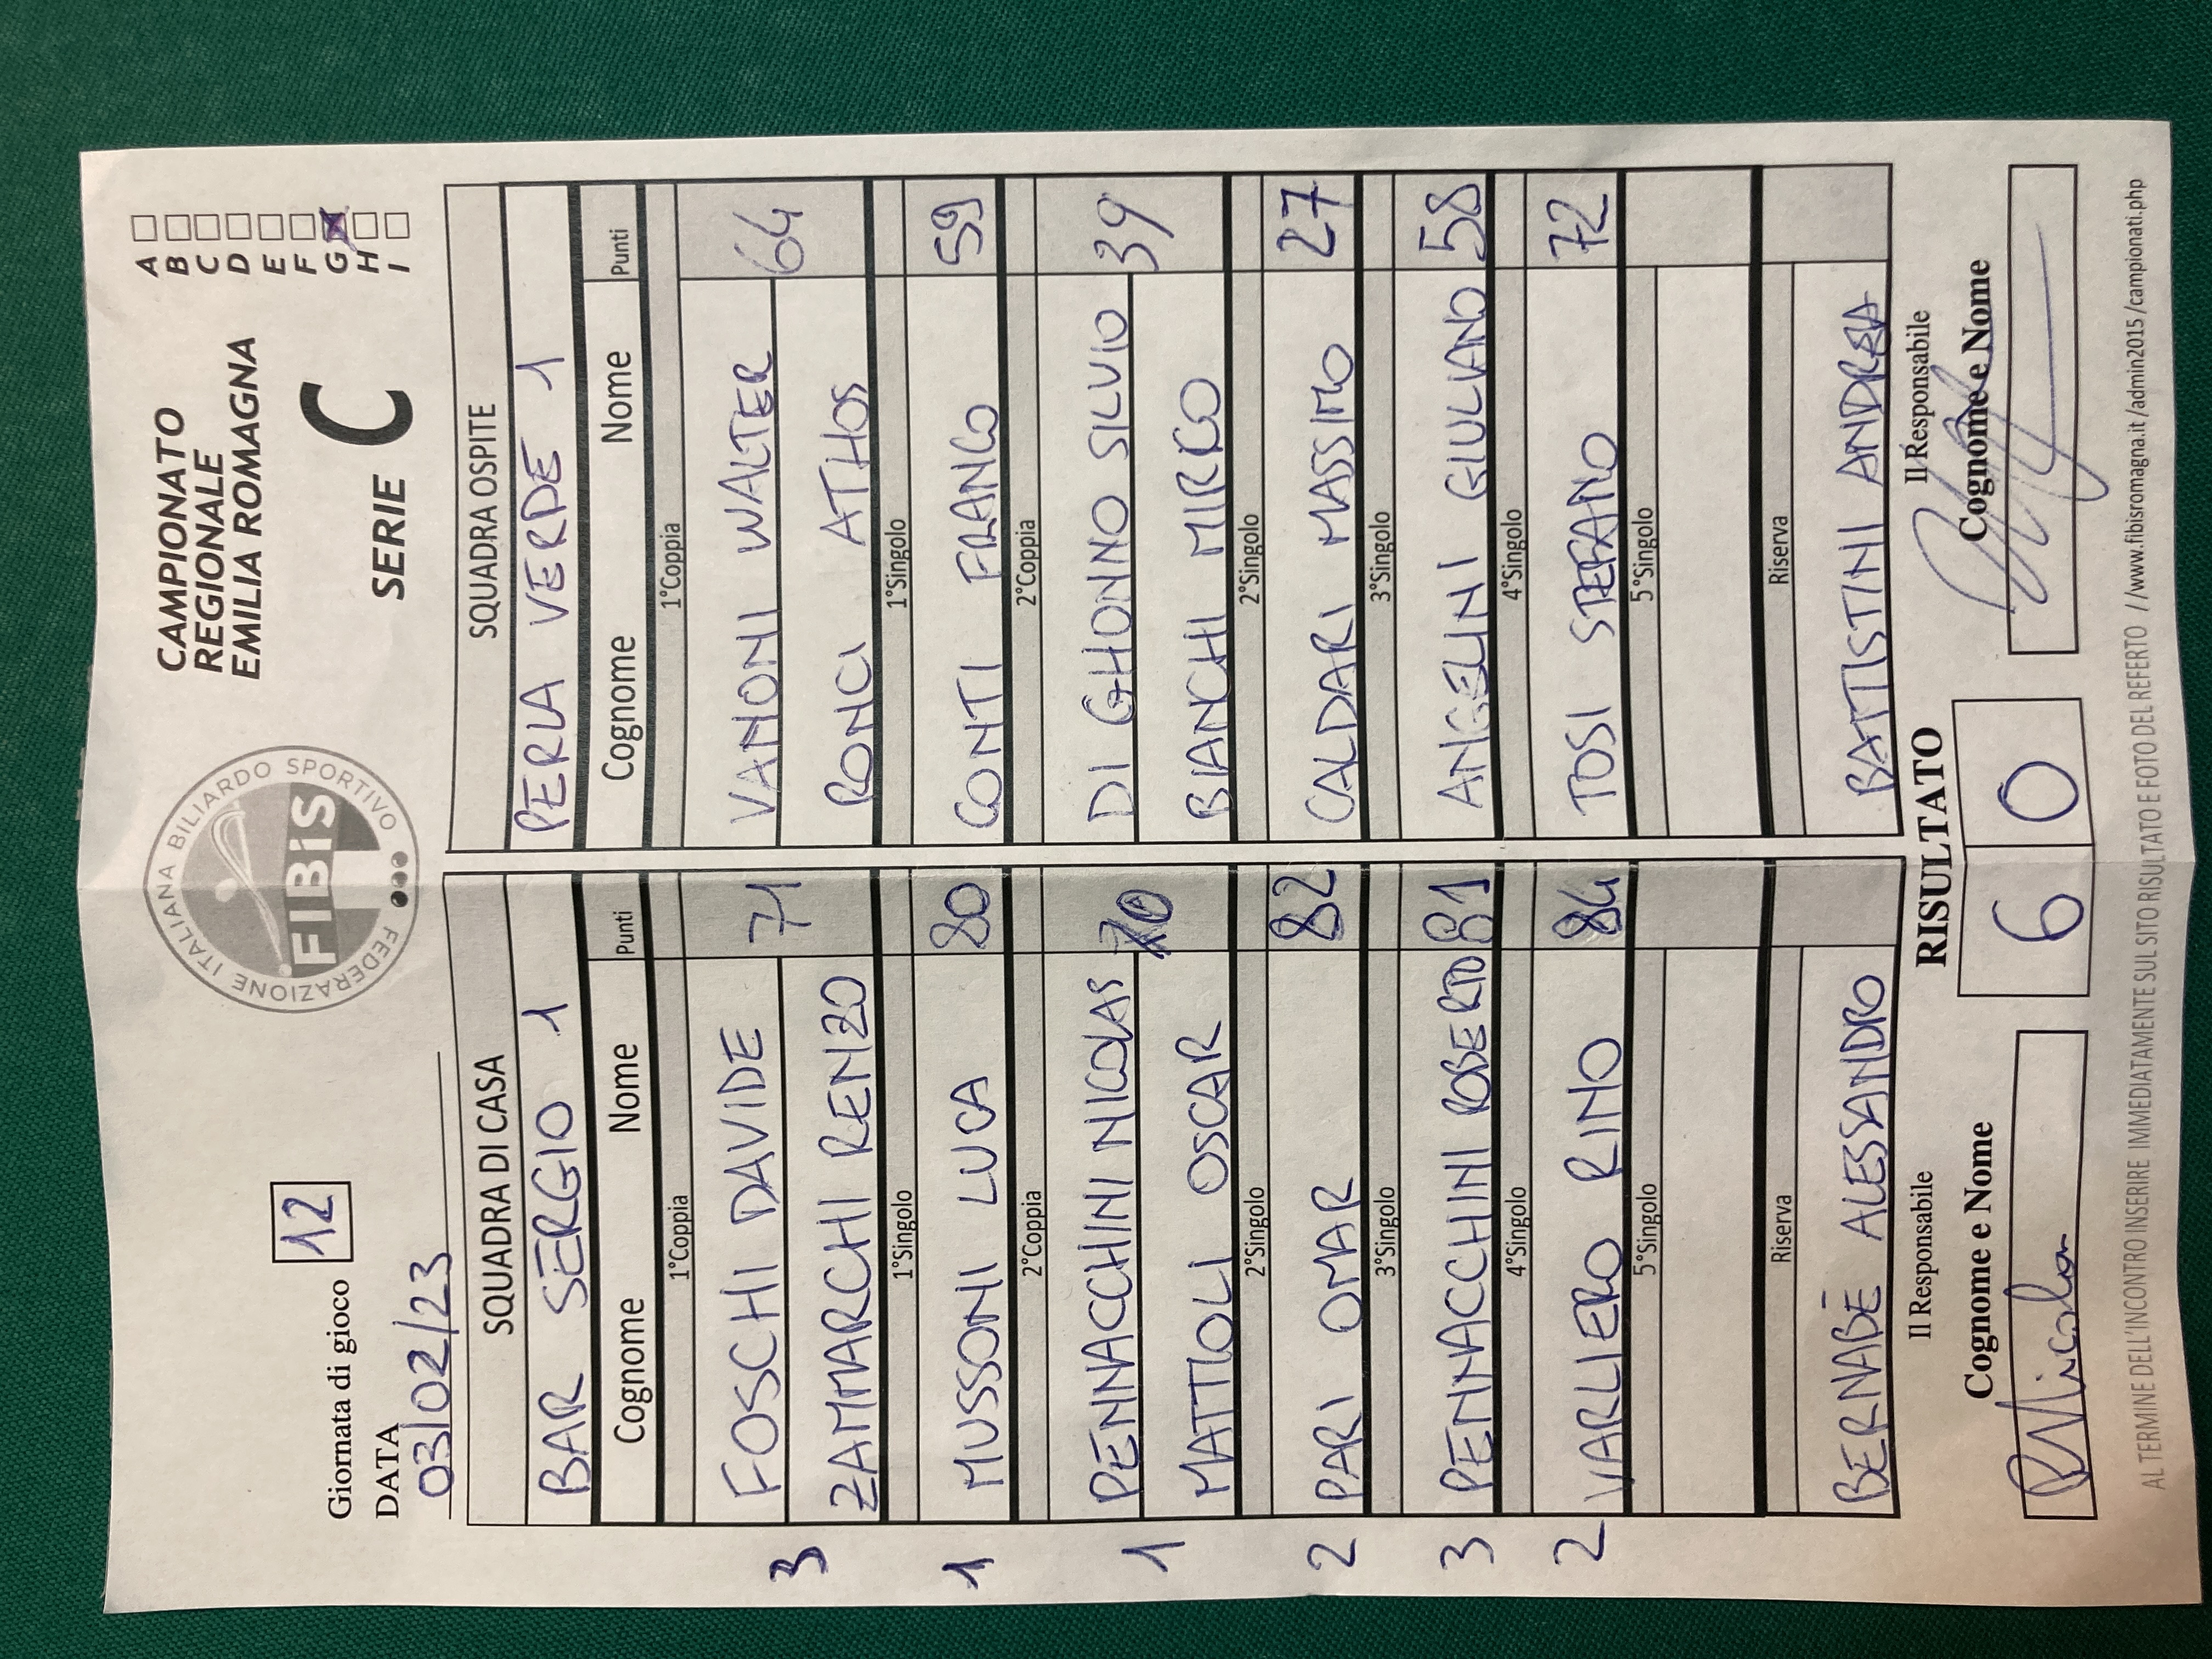 Giornata di gioco 12
DATA
03/02/23
FEDERAZIONE ITALIANA BILIARDO SPORTIVO
FIBiS
CAMPIONATO
REGIONALE
EMILIA ROMAGNA
SERIE C
A
B
C
D
E
F
G
H
I
SQUADRA DI CASA SQUADRA OSPITE
BAR SERGIO 1 PERLA VERDE 1
Cognome Nome Punti Cognome Nome Punti
1°Coppia 1°Coppia
3 FOSCHI DAVIDE 71 VANONI WALTER 64
ZAMMARCHI RENZO RONCI ATHOS
1°Singolo 1°Singolo
1 MUSSONI LUCA 80 CONTI FRANCO 59
2°Coppia 2°Coppia
1 PENNACCHINI NICOLAS 70 DI GHIONNO SILVIO 39
MATTIOLI OSCAR BIANCHI MIRCO
2°Singolo 2°Singolo
2 PARI OMAR 82 CALDARI MASSIMO 27
3°Singolo 3°Singolo
3 PENNACCHINI ROBERTO 81 ANGELINI GIULIANO 58
4°Singolo 4°Singolo
2 VARLIERO RINO 84 TOSI STEFANO 72
5°Singolo 5°Singolo
Riserva Riserva
BERNABÈ ALESSANDRO BATTISTINI ANDREA
Il Responsabile RISULTATO Il Responsabile
Cognome e Nome 6 0 Cognome e Nome
AL TERMINE DELL'INCONTRO INSERIRE IMMEDIATAMENTE SUL SITO RISULTATO E FOTO DEL REFERTO //www.fibisromagna.it/admin2015/campionati.php